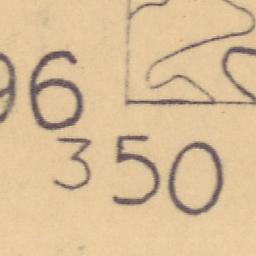 96
350